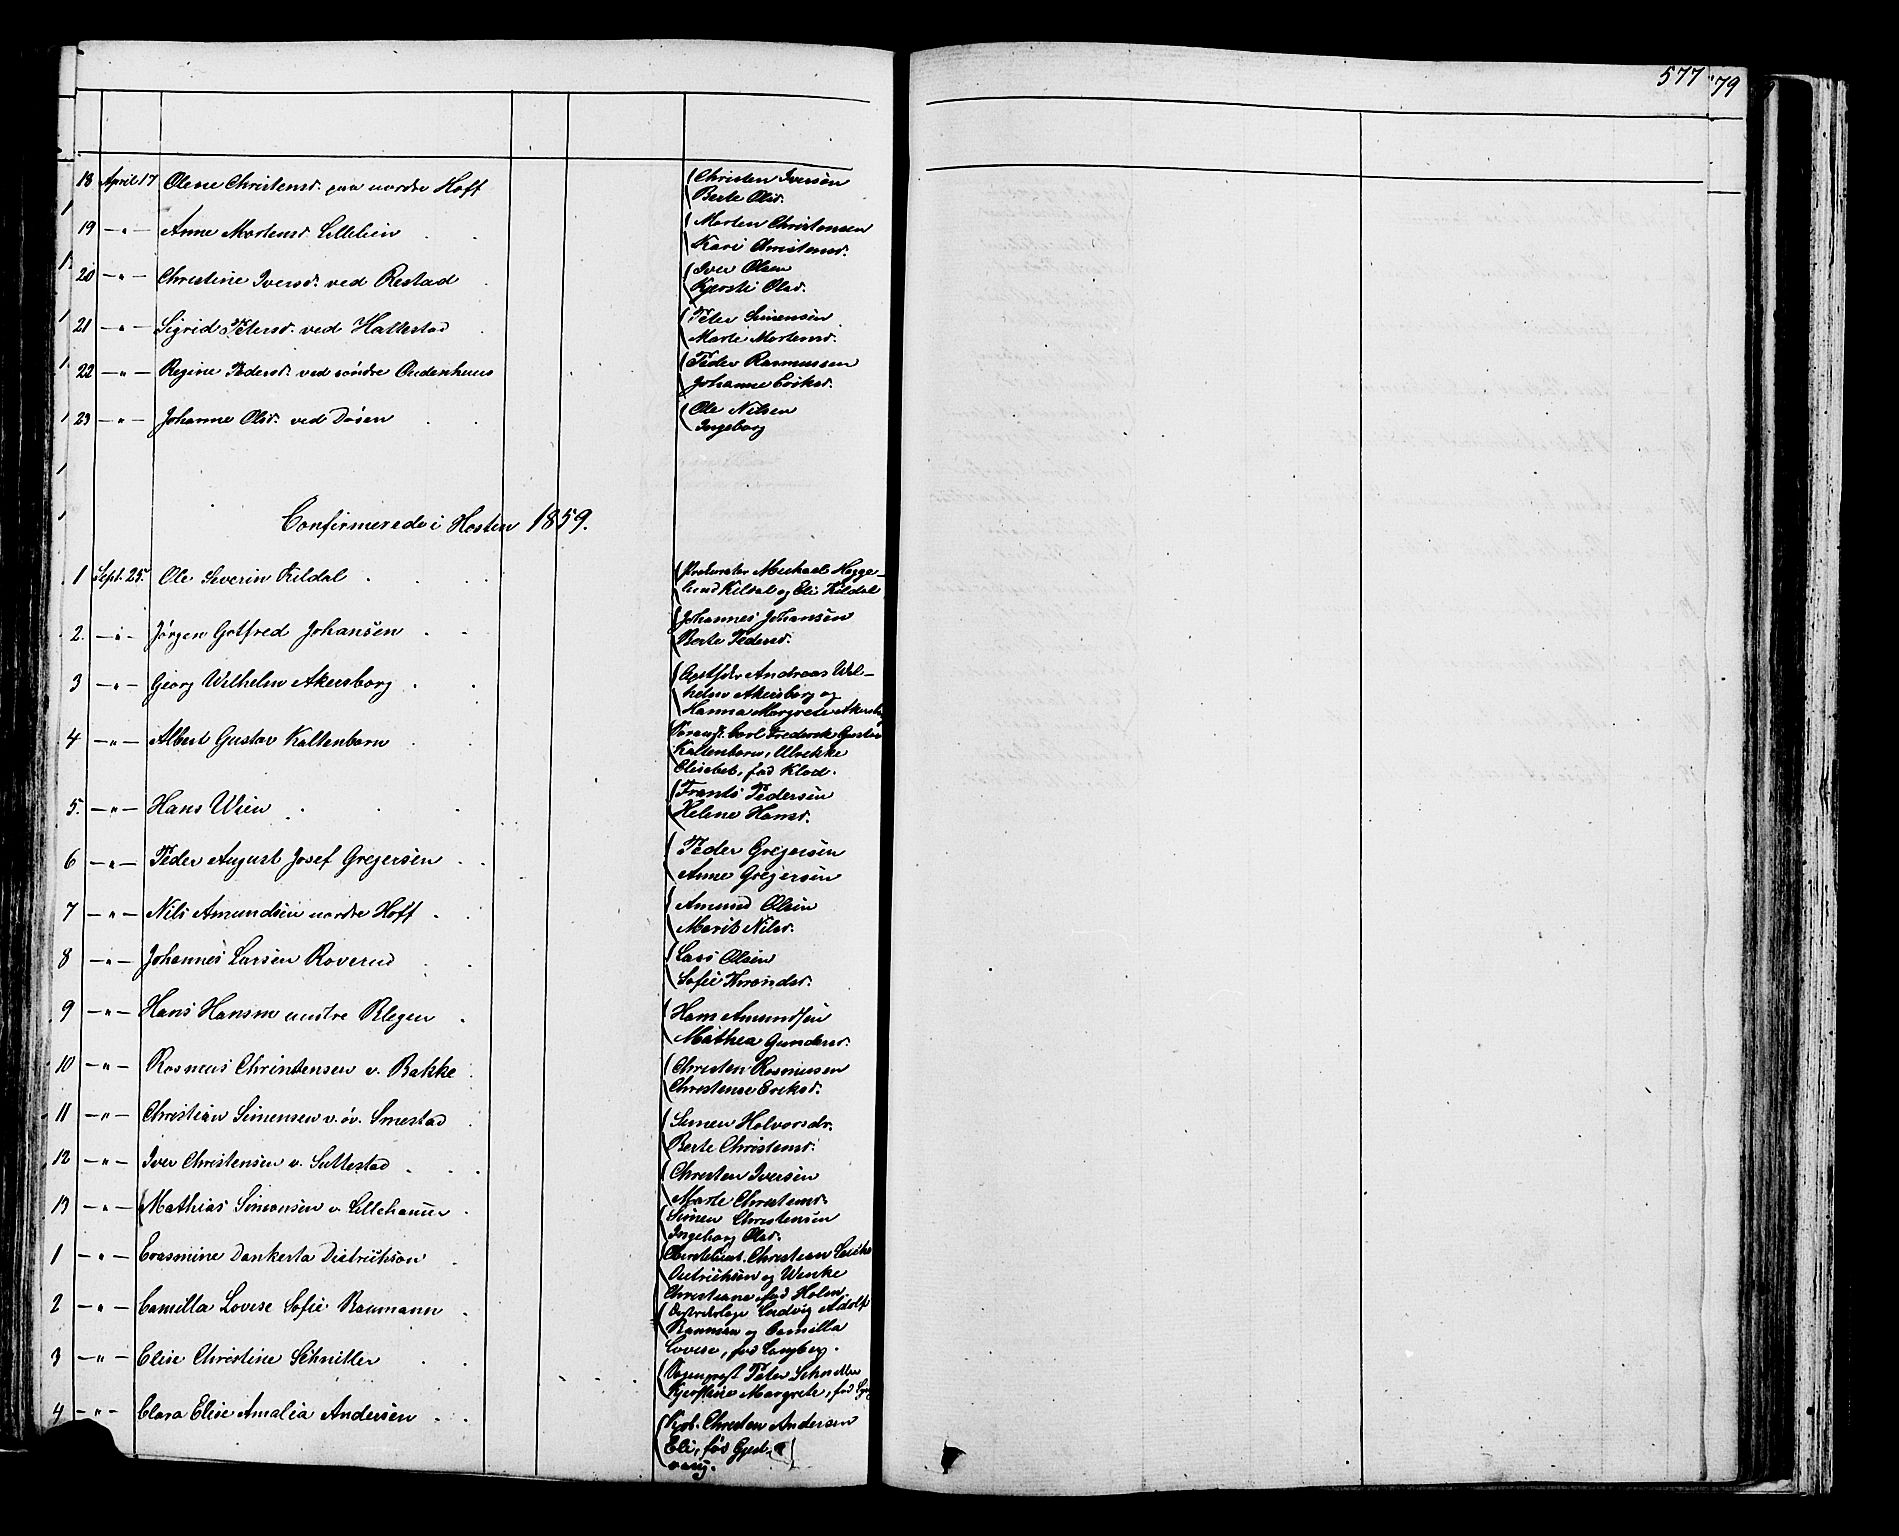 577
79
18 April 17 Olene Christensd. paa nordre Hoff
Christen Iversen
Berte Olsd.
19 —"— Anne Mortensd. Lillelien
Morten Christensen
Kari Christensd.
20 —"— Christine Iversd. ved Restad
Iver Olsen
Kjersti Olsd.
21 —"— Sigrid Petersd. ved Hattestad
Peter Simensen
Marte Mortensd.
22 —"— Regine Pedersd. ved søndre Oudenhuus
Peder Rasmussen
Johanne Eriksd.
23 —"— Johanne Olsd. ved Døsen
Ole Nilsen
Ingeborg
Confirmerede i Høsten 1859.
1 Sept. 25. Ole Severin Kildal
Procurator Michael Hegge-
lund Kildal og Eli Kildal
2. —"— Jørgen Gotfred Johansen
Johannes Johansen
Berte Pedersd.
3 —"— Georg Wilhelm Akersborg
Andreas Wil-
helm Akersborg og
Hanna Margrete Akersborg
4 —"— Albert Gustav Kaltenborn
Carl Frederik Gustav
Kaltenborn, Ulrikke
Elisabet, fød Klod.
5. —"— Hans Wien
Frants Pedersen
Helene Hansd.
6 —"— Peder August Josef Gregersen
Peder Gregersen
Anne Gregersen
7 —"— Nils Amundsen nordre Hoff
Amund Olsen
Marit Nilsd.
8 —"— Johannes Larsen Roverud
Lars Olsen
Sofie
9 —"— Hans Hansen nustre Blegen
Hans Amundsen
Mathea Gundersd.
10 —"— Rasmus Christensen v. Bakke
Christen Rasmussen
Christense Eriksd.
11 —"— Christian Simensen v. öv. Smestad
Simen Halvorsdr.
Berte Christensd.
12 —"— Iver Christensen v. Suttestad
Christen Iversen
Marte Christensd.
13 —"— Mathias Simensen v. Lillehamer
Simen Christensen
Ingeborg Olsd.
1 —"— Erasmine Dankerta Dietrichson
Oberstlieut. Christian
Dietrichsen og Wenke
Christiane, fød Holm.
2 —"— Camilla Lovise Sofie Naumann
Ludvig Adolf
Naumann og Camilla
Lovise, fød Langberg.
3 —"— Elise Christine Schnitler
Peter Schnitler
Kjerstine Margrete, fød
4 —"— Clara Elise Amalia Andersen
Kjøb. Christen Andersen
Eli, fød Gjest-
vang.